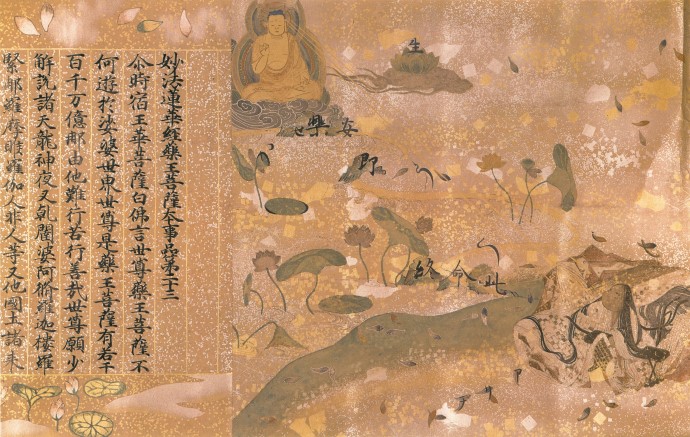 此命終
即
安樂世
生
妙法蓮華經藥王菩薩本事品第二十三
尒時宿王華菩薩白佛言世尊藥王菩薩云
何遊於娑婆世界世尊是藥王菩薩有若干
百千万億那由他難行苦行善哉世尊願少
解說諸天龍神夜叉乹闥婆阿脩羅迦樓羅
緊那羅摩睺羅伽人非人等又他國土諸來